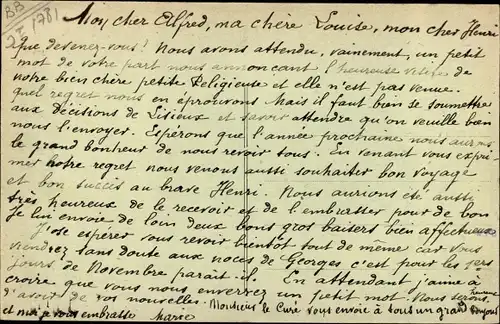 BB
22 1781
Mon cher Alfred, ma chère Louise, mon cher Henri
Que devenez-vous! Nous avons attendu, vainement, un petit
mot de votre part nous annonçant l'heureuse visite de
notre bien chère petite Religieuse et elle n'est pas venue.
quel regret nous en éprouvons. Mais il faut bien se soumettre
aux décisions de Lisieux et savoir attendre qu'on veuille bien
nous l'envoyer. Espérons que l'année prochaine nous aurons
le grand bonheur de nous revoir tous. En venant vous expri
mer notre regret nous venons aussi souhaiter bon voyage
et bon succès au brave Henri. Nous aurions été aussi
très heureux de le recevoir et de l'embrasser pour de bon
Je lui envoie de loin deux bons gros baisers bien affectueux
J'ose espérer vous revoir bientôt tout de même car vous
viendrez sans doute aux noces de Georges c'est pour les 1ers
jours de Novembre parait-il. En attendant j'aime à
croire que vous nous enverrez un petit mot. Nous serons heureux
d'avoir de vos nouvelles. Monsieur le Curé vous envoie à tous un grand Bonjour
et moi je vous embrasse Marie